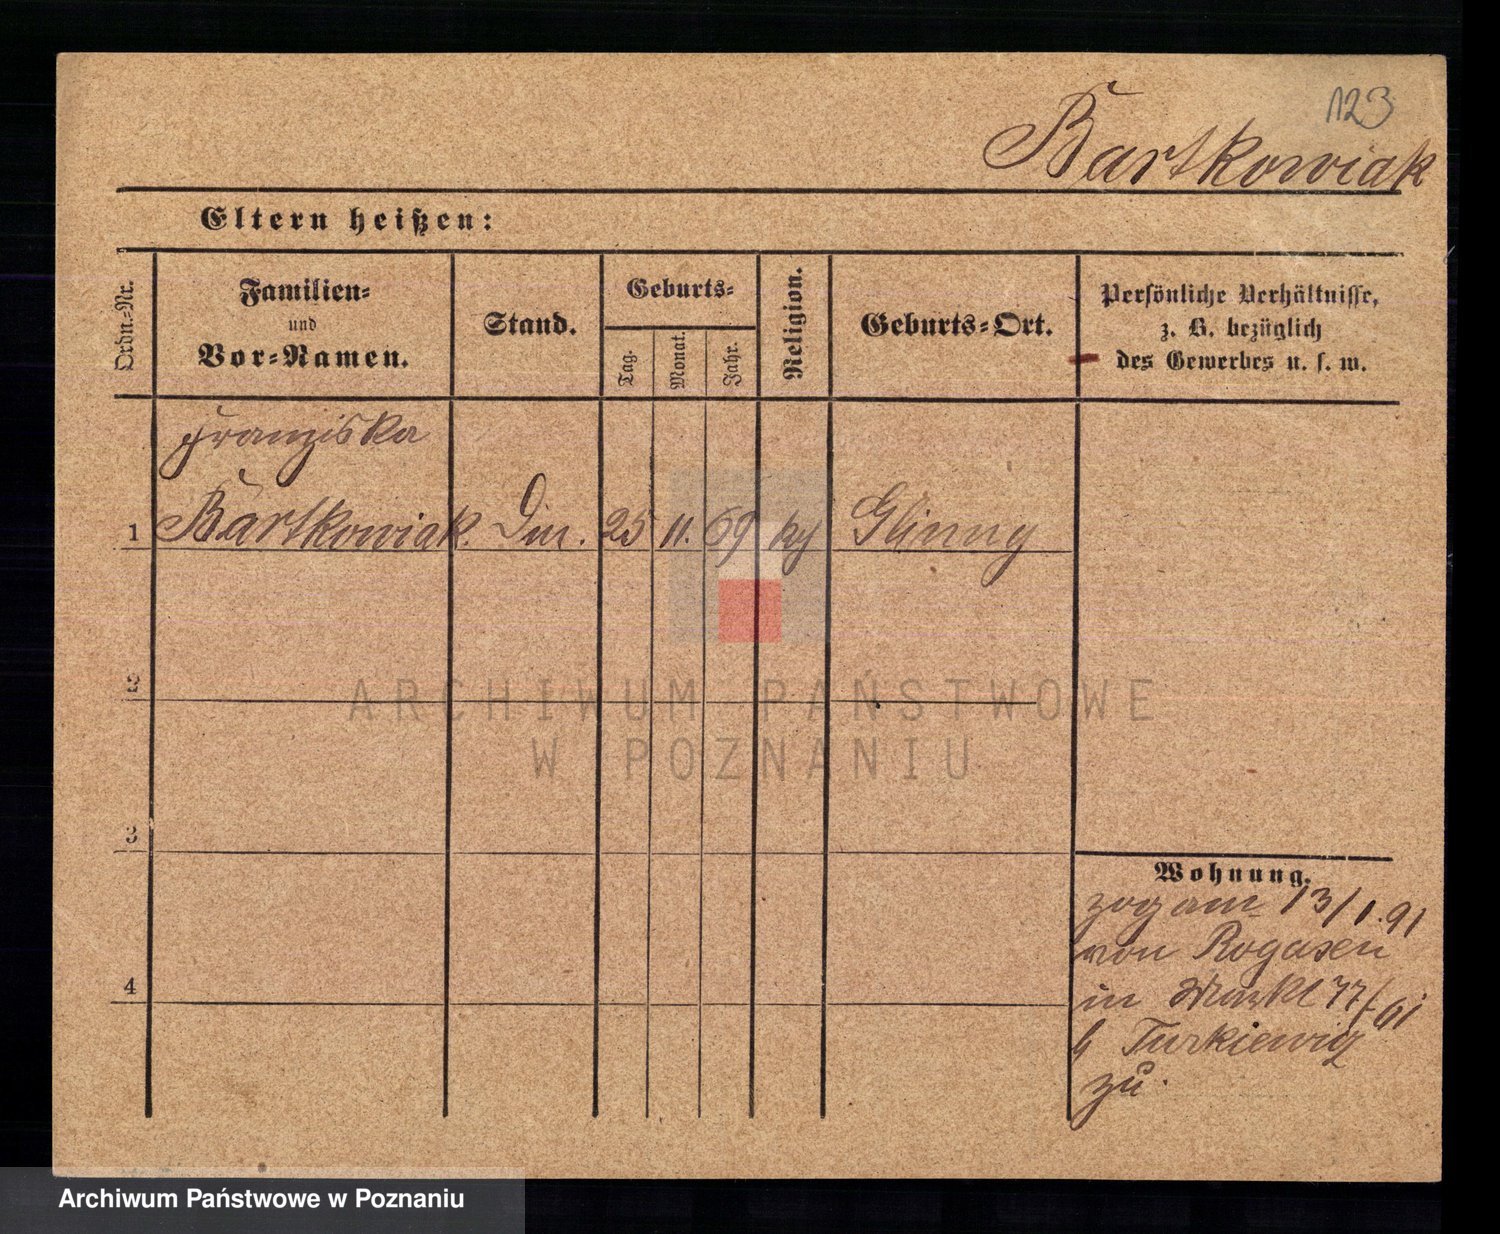 123
Bartkowiak
Eltern heißen:
Ordn.-Nr.
Familien-
und
Vor-Namen.
Stand.
Geburts-
Tag.
Monat.
Jahr.
Religion.
Geburts-Ort.
Persönliche Verhältnisse,
z. B. bezüglich
des Gewerbes u. s. w.
Franziska
1 Bartkowiak. 25 11. 69 Glinny
2
3
4
Wohnung.
zog am 13/1. 91
von Rogasen
in Markt 77/
Turkiewicz
zu.
ARCHIWUM PAŃSTWOWE
W POZNANIU
Archiwum Państwowe w Poznaniu